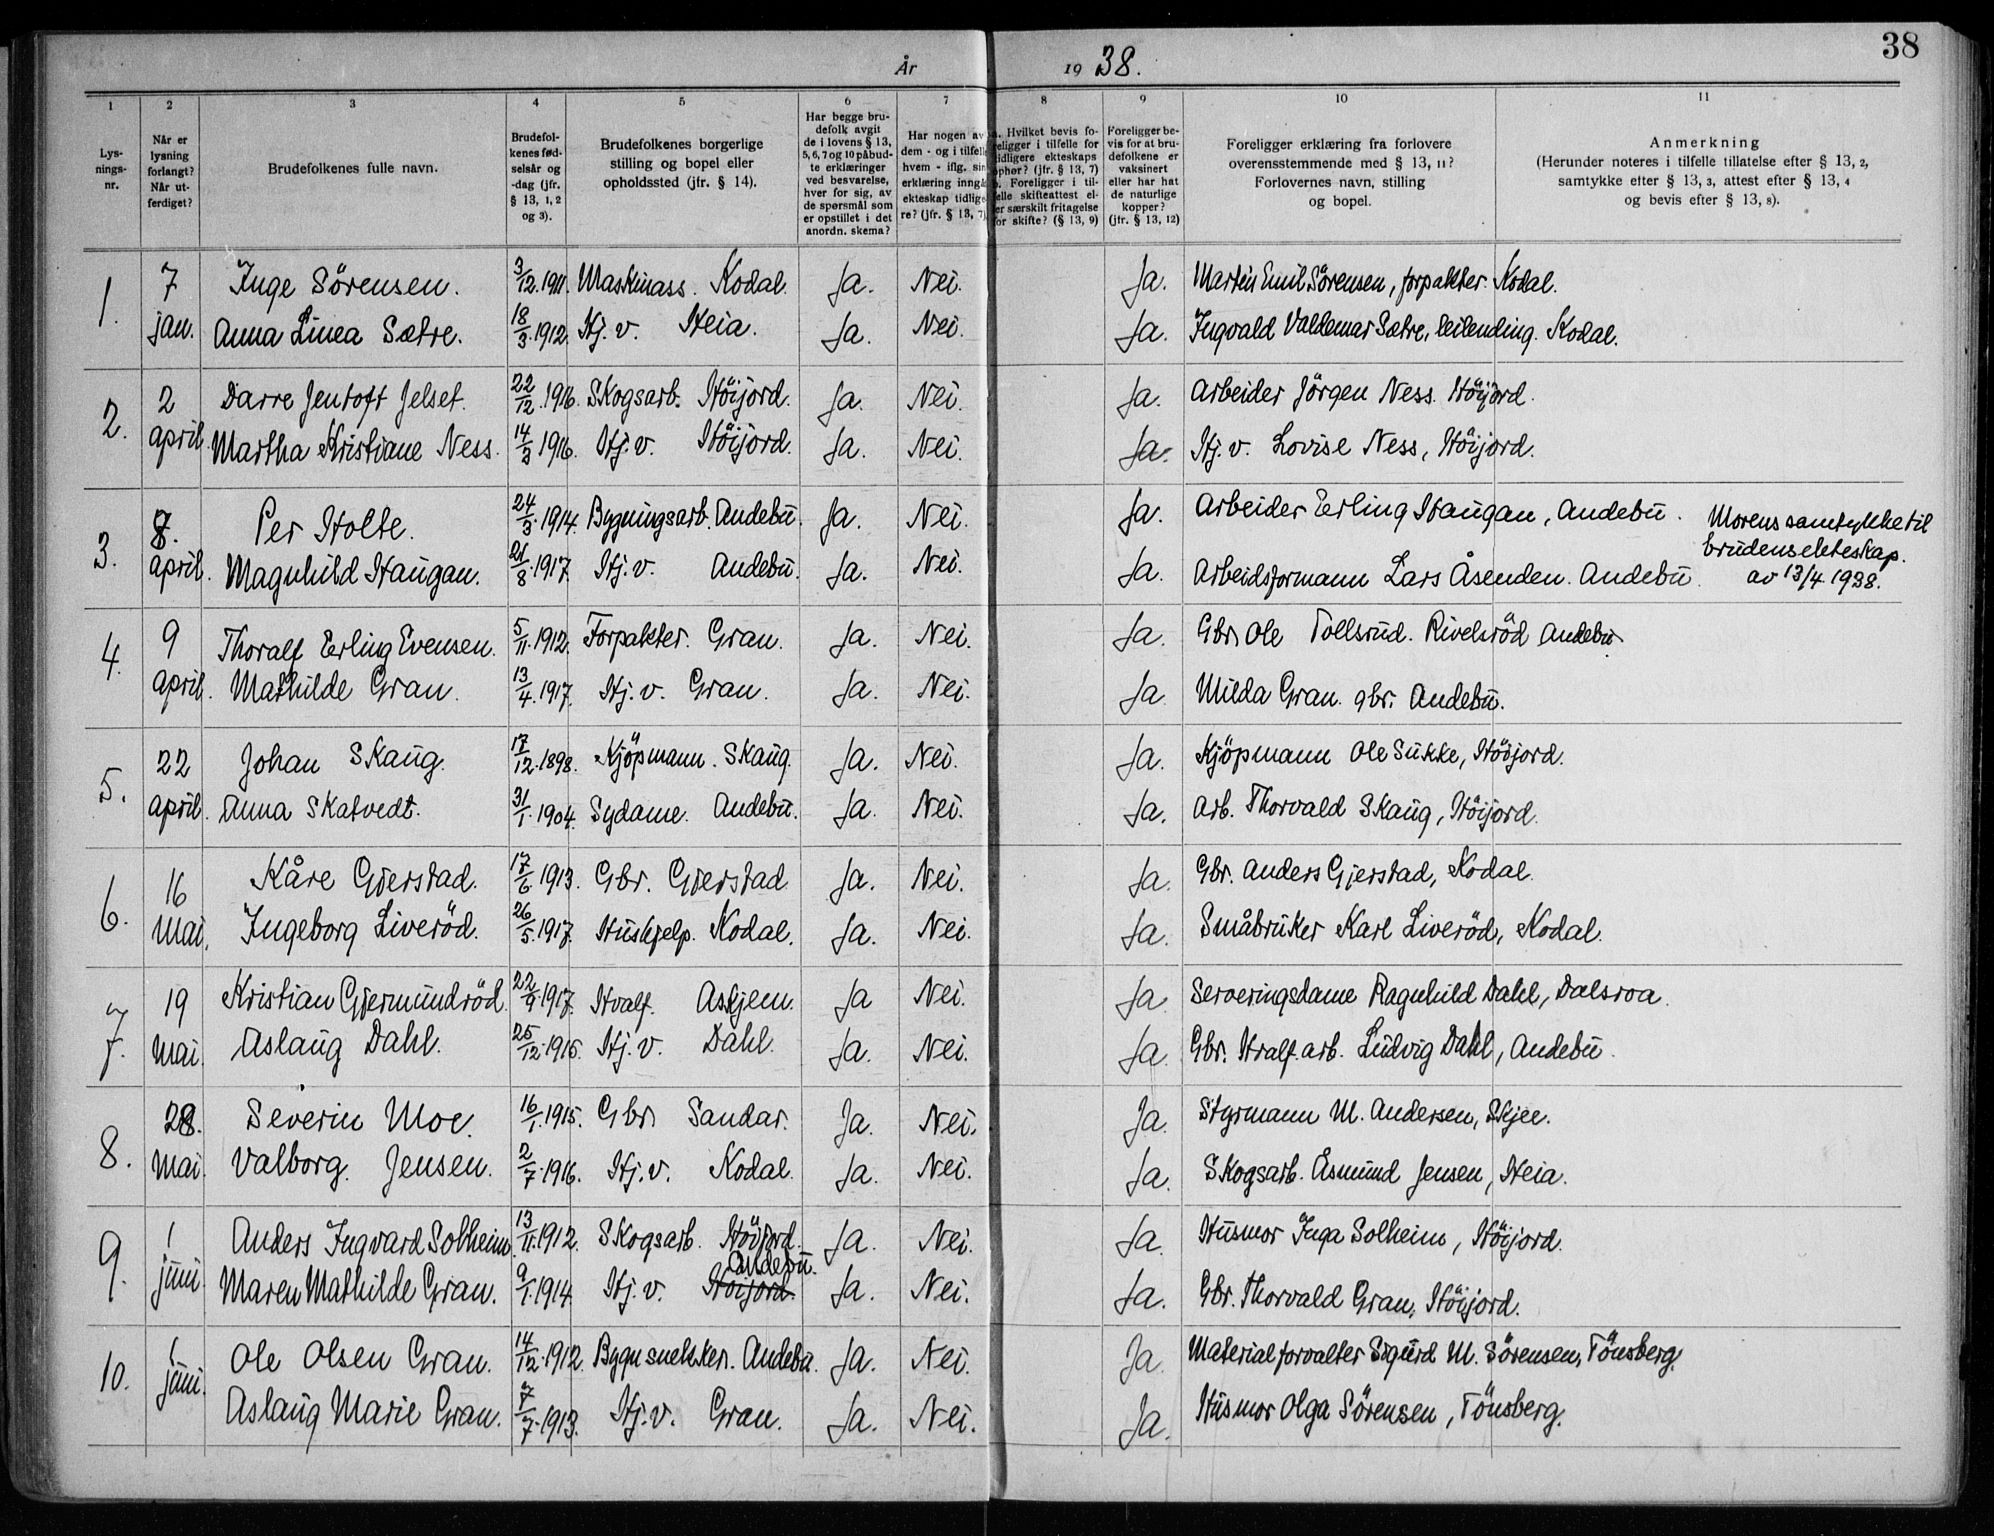 38
År 1938.
1 2 3 4 5 6 7 8 9 10 11
Lys-
nings-
nr.
Når er
lysning
forlangt?
Når ut-
ferdiget?
Brudefolkenes fulle navn.
Brudefol-
kenes fød-
selsår og
-dag (jfr.
§ 13, 1, 2
og 3).
Brudefolkenes borgerlige
stilling og bopel eller
opholdssted (jfr. § 14).
Har begge bru-
defolk avgit
de i lovens § 13,
5, 6, 7 og 10 påbud-
te erklæringer
ved besvarelse,
hver for sig, av
de spørsmål som
er opstillet i det
anordn. skema?
Har nogen av
dem - og i tilfelle
hvem - iflg. sin
erklæring inngå
ekteskap tidlige-
re? (jfr. § 13, 7).
a. Hvilket bevis fo-
religger i tilfelle for
tidligere ekteskaps
ophør? (jfr. § 13, 7)
b. Foreligger i til-
felle skifteattest el-
er særskilt fritagelse
for skifte? (§ 13, 9)
Foreligger be-
vis for at bru-
defolkene er
vaksinert
eller har hat
de naturlige
kopper?
(jfr. § 13, 12)
Foreligger erklæring fra forlovere
overensstemmende med § 13, 11?
Forlovernes navn, stilling
og bopel.
Anmerkning
(Herunder noteres i tilfelle tillatelse efter § 13, 2,
samtykke efter § 13, 3, attest efter § 13, 4
og bevis efter § 13, 8).
1. 7 Inge Sörensen. 3/12.1911. Maskinass. Kodal. Ja. Nei. Ja. Martin Emil Sörensen, forpakter. Kodal.
jan. Anna Linea Sætre. 18/3.1912. Hj. v. Heia. Ja. Nei. Ja. Ingvald Valdemar Sætre, leilending. Kodal.
2. 2 Darre Jentoft Jelset. 22/12.1916. Skogsarb. Höijord. Ja. Nei. Ja. Arbeider Jörgen Ness. Höijord.
april. Martha Kristiane Ness. 14/3.1916. Hj. v. Höijord. Ja. Nei. Ja. Hj. v. Lovise Ness, Höijord.
3. 8. Per Holte. 24/3.1914. Bygningsarb. Andebu. Ja. Nei. Ja. Arbeider Erling Haugan, Andebu. Morens samtykke til
brudens ekteskap.
april. Magnhild Haugan. 21/8.1917. Hj. v. Andebu. Ja. Nei. Ja. Arbeidsformann Lars Åsenden. Andebu. av 13/4 1938.
4. 9 Thoralf Erling Evensen. 5/11.1912. Forpakter. Gran. Ja. Nei. Ja. Gbr. Ole Tollsrud. Rivelsröd Andebu.
april. Mathilde Gran. 13/4.1917. Hj. v. Gran. Ja. Nei. Ja. Milda Gran. gbr. Andebu.
5. 22 Johan Skaug. 17/12.1898. Kjöpmann. Skaug. Ja. Nei. Ja. Kjöpmann Ole Sukke, Höijord.
april. Anna Skatvedt. 31/1.1904. Sydame. Andebu. Ja. Nei. Ja. Arb. Thorvald Skaug, Höijord.
6. 16 Kåre Gjerstad. 17/6.1913. Gbr. Gjerstad Ja. Nei. Ja. Gbr. Anders Gjerstad, Kodal.
mai. Ingeborg Liveröd. 26/5.1917. Hushjelp. Kodal. Ja. Nei. Ja. Småbruker Karl Liveröd, Kodal.
7. 19 Kristian Gjermundröd. 22/9.1917. Hvalf. Askjem. Ja Nei. Ja. Serveringsdame Ragnhild Dahl, Dalsroa.
mai. Aslaug Dahl. 25/12.1915. Hj. v. Dahl. Ja. Nei. Ja. Gbr. Hvalf. arb. Ludvig Dahl, Andebu.
8. 28. Severin Moe. 16/1.1915. Gbr. Sandar. Ja. Nei. Ja. Styrmann M. Andersen, Skjee.
mai. Valborg Jensen. 2/7.1916. Hj. v. Kodal. Ja. Nei. Ja. Skogsarb. Åsmund Jensen, Heia.
9. 1 Anders Ingvard Solheim. 13/11.1912. Skogsarb. Höijord. Ja. Nei. Ja. Husmor Inga Solheim, Höijord.
Andebu.
juni Maren Mathilde Gran. 9/1.1914. Hj. v. Höijord. Ja. Nei. Ja. Gbr. Thorvald Gran, Höijord.
10. 1 Ole Olsen Gran. 14/12.1912. Bygn snekker. Andebu. Ja. Nei. Ja. Materialforvalter Sigurd M. Sörensen, Tönsberg.
juni. Aslaug Marie Gran. 7/7.1913. Hj. v. Gran. Ja. Nei. Ja. Husmor Olga Sörensen, Tönsberg.